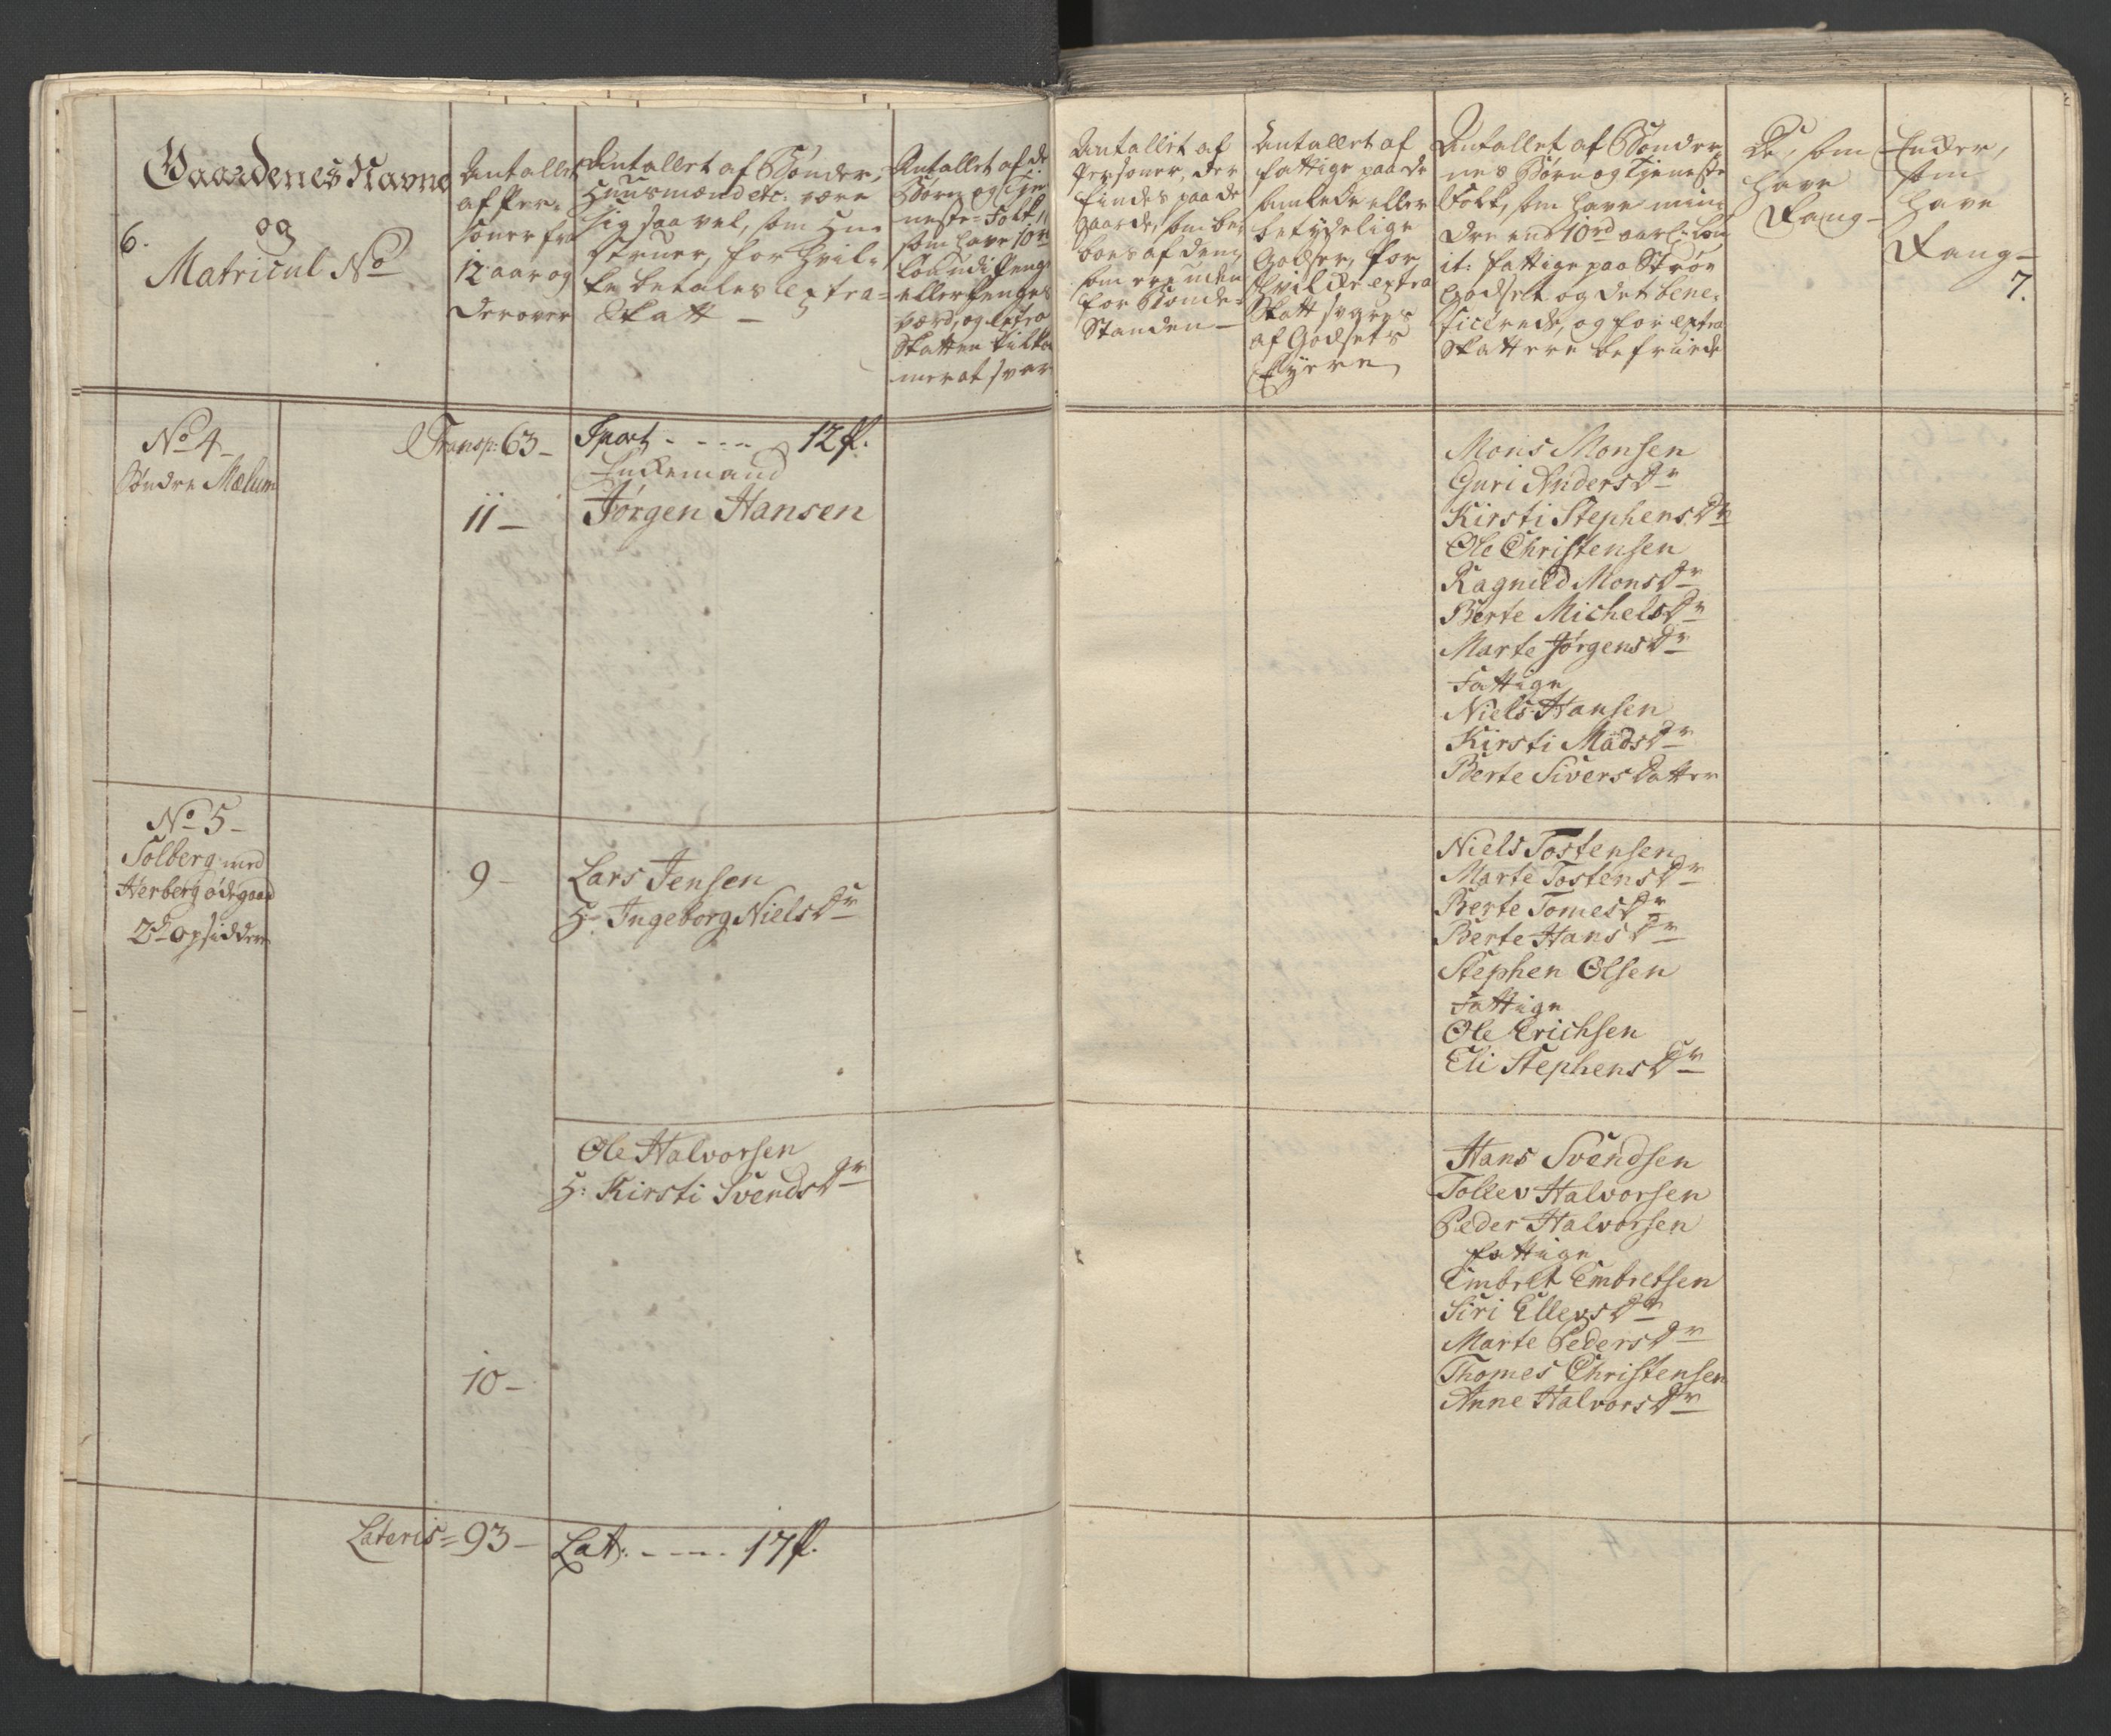 6.
Gaardenes Navne
og
Matricul No
Antallet
af Per-
soner fra
12 aar og
derover
Antallet af Bønder,
Huusmænd etc: være
sig saa vel, som Hu-
struer, for hvil-
ke betales Extra-
Skatt
Antallet af de
Børn og Tje-
neste-Folk,
som have 10rd
Løn udi Penge
eller Penges
værd, og Extra
Skatten tilko
mer at svar
Antallet af
Personer, der
findes paa de
Gaarde, som be
boes af dem,
som ere uden
for Bonde-
Standen
Antallet af
fattige paa de
samlede eller
betydelige
Godser, for
hvilcke extra
Skatt svares
af Godsets
Eyere
Antallet af Bønder
nes Børn og Tjeneste
Folk, som have min
dre end 10rd aarl: Løn
it: fattige paa Strøe
Godset og det bene-
ficerede, og for extra
Skatt ere befriede
De, som
have
Rang
Encker,
som
have
Rang
7.
No 4
Søndre Mælum
Transp: 63
Tpart - - - - 12 st.
Enckemand
11
Jørgen Hansen
Mons Monsen
Guri Anders Dr
Kirsti Stephens Dr
Ole Christensen
Ragnild Mons Dr
Berte Michels Dr
Marte Jørgens Dr
Fattige
Niels Hansen
Kirsti Mads Dr
Berte Sivers Datter
No 5
Solberg med
Herberg ødegaard
2de opsiddere
9
Lars Jensen
H: Ingeborg Niels Dr
Niels Tostensen
Marte Tostens Dr
Berte Tomes Dr
Berte Hans Dr
Stephen Olsen
Fattige
Ole Erichsen
Eli Stephens Dr
Ole Halvorsen
H: Kirsti Svends Dr
10
Hans Svendsen
Tollev Halvorsen
Peder Halvorsen
fattige
Embret Embretsen
Siri Ellevs Dr
Marte Peders Dr
Thomes Christensen
Anne Halvors Dr
Lateris = 93
Lat: - - - - 17 st.